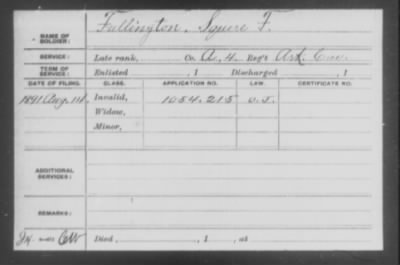 NAME OF SOLDIER: Fullington, Squire F.
SERVICE: Late rank, Co. A, 4 Reg't Ark. Cav.
TERM OF SERVICE: Enlisted , 1 Discharged , 1
DATE OF FILING. CLASS. APPLICATION NO. LAW. CERTIFICATE NO.
1891 Aug. 14 Invalid, 1054.215
Widow,
Minor,
ADDITIONAL SERVICES:
REMARKS:
Died , 1 , at